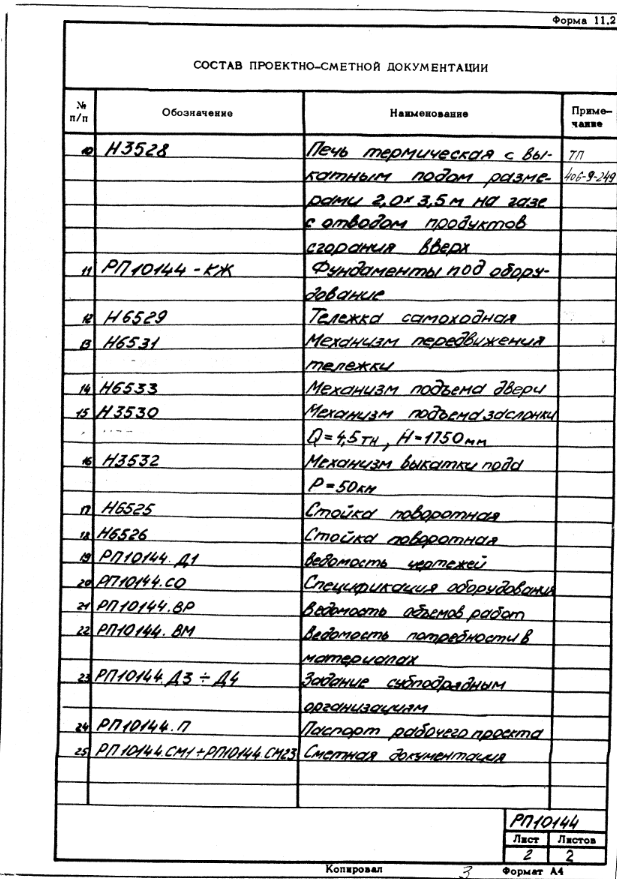 Форма 11.2
СОСТАВ ПРОЕКТНО-СМЕТНОЙ ДОКУМЕНТАЦИИ
№ п/п Обозначение Наименование Примечание
10 Н3528 Печь термическая с вы- ТП
катным подом разме- 406-9-249
рами 2,0×3,5 м на газе
с отводом продуктов
сгорания вверх
11 РП10144-КЖ Фундаменты под обору-
дование
12 Н6529 Тележка самоходная
13 Н6531 Механизм передвижения
тележки
14 Н6533 Механизм подъема двери
15 Н3530 Механизм подъема заслонки
Q=4,5тн, Н=1750мм
16 Н3532 Механизм выкатки пода
Р=50кн
17 Н6525 Стойка поворотная
18 Н6526 Стойка поворотная
19 РП10144.Д1 Ведомость чертежей
20 РП10144.СО Спецификация оборудования
21 РП10144.ВР Ведомость объемов работ
22 РП10144.ВМ Ведомость потребности в
материалах
23 РП10144.Д3÷Д4 Задание субподрядным
организациям
24 РП10144.П Паспорт рабочего проекта
25 РП10144.СМ1÷РП10144.СМ23 Сметная документация
РП10144
Лист Листов
2 2
Копировал 3 Формат А4